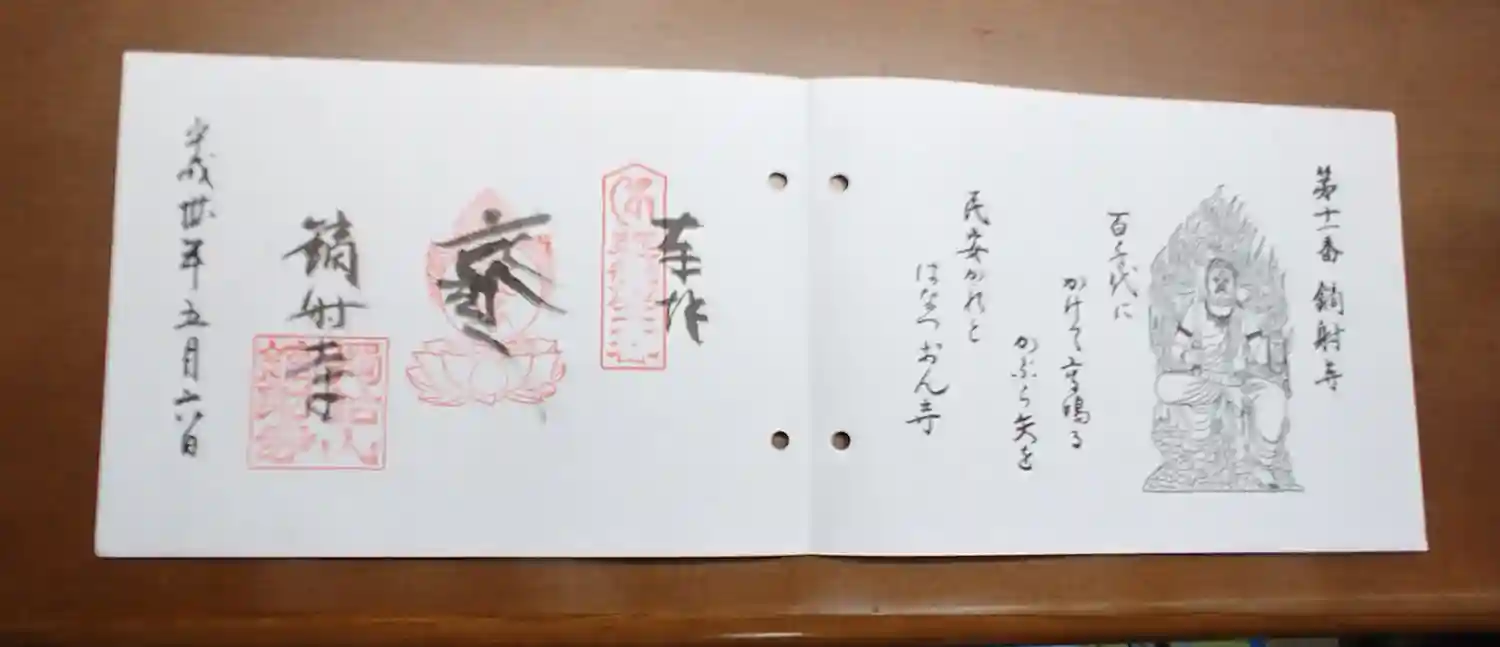 第十一番 鏑射寺
百千代に
かけて高鳴る
かぶら矢を
民安かれと
はなつおん寺
奉拝
鏑射寺
平成卅年五月六日